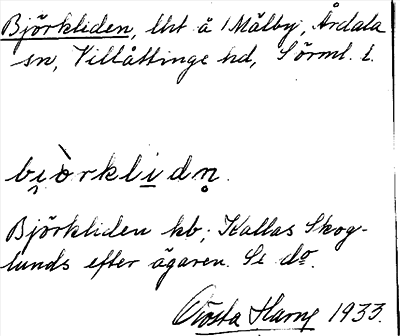 Björkliden, lht å Mälby, Årdala
sn, Villåttinge hd, Sörml. l.
bi̯ö̀rklidn̥.
Björkliden kb; Kallas Skog-
lunds efter ägaren. Se do.
Gösta Harng 1933.